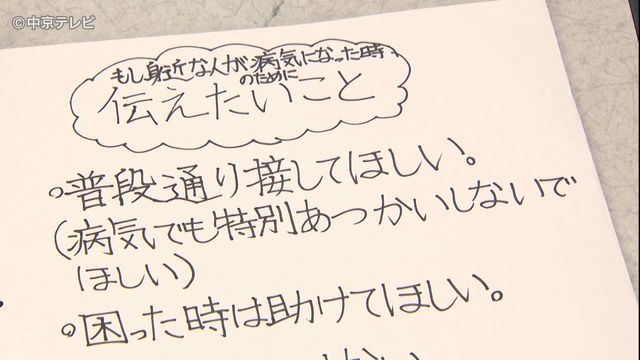 ©中京テレビ
もし身近な人が病気になった時
のために
伝えたいこと
・普段通り接してほしい。
(病気でも特別あつかいしないで
ほしい)
・困った時は助けてほしい。